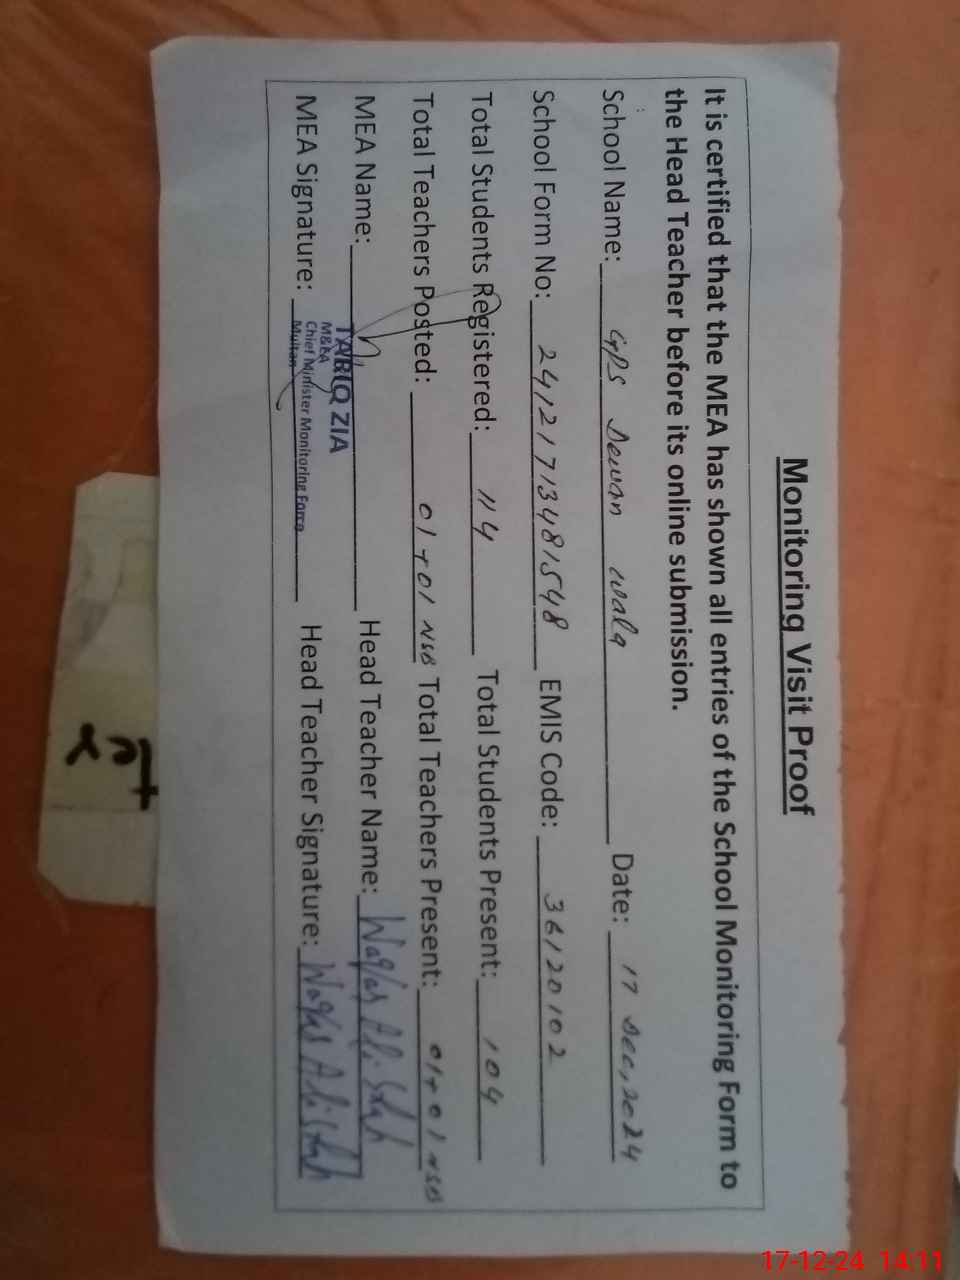 Monitoring Visit Proof
It is certified that the MEA has shown all entries of the School Monitoring Form to
the Head Teacher before its online submission.
School Name: GPS Dewan wala Date: 17 Dec, 2024
School Form No: 24121713481548 EMIS Code: 36120102
Total Students Registered: 114 Total Students Present: 104
Total Teachers Posted: 01+01 NSB Total Teachers Present: 01+01 NSB
MEA Name: Head Teacher Name: Waqas Ali Shah
MEA Signature: Head Teacher Signature: Waqas Ali Shah
TARIQ ZIA
M&EA
Chief Minister Monitoring Force
Multan
17-12-24 14:11